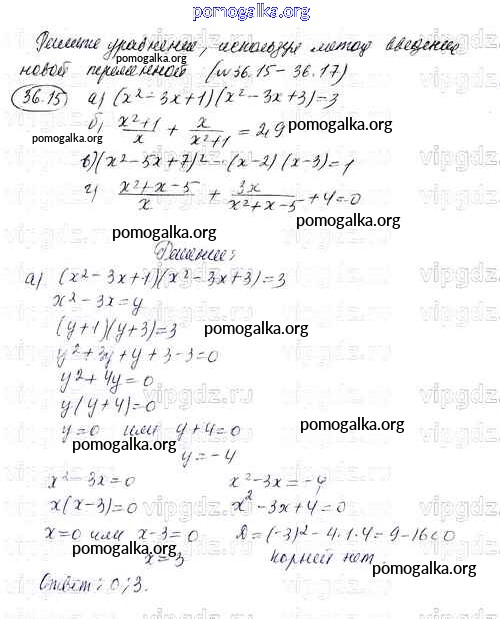 pomogalka.org
Решите уравнение, используя метод введения
pomogalka.org
новой переменной (№36.15-36.17)
36.15 а) (x²-3x+1)(x²-3x+3)=3
б) x²+1/x + x/x²+1 = 2,9 pomogalka.org
pomogalka.org
в) (x²-5x+7)²-(x-2)(x-3)=1
г) x²+x-5/x + 3x/x²+x-5 + 4=0
pomogalka.org pomogalka.org
Решение:
а) (x²-3x+1)(x²-3x+3)=3
x²-3x=y
(y+1)(y+3)=3 pomogalka.org
y²+3y+y+3-3=0
y²+4y=0
y(y+4)=0
y=0 или y+4=0 pomogalka.org
pomogalka.org y=-4
x²-3x=0 x²-3x=-4
x(x-3)=0 x²-3x+4=0
x=0 или x-3=0 D=(-3)²-4·1·4=9-16<0
pomogalka.org корней нет
x=3 pomogalka.org
Ответ: 0; 3.
vipgdz.ru